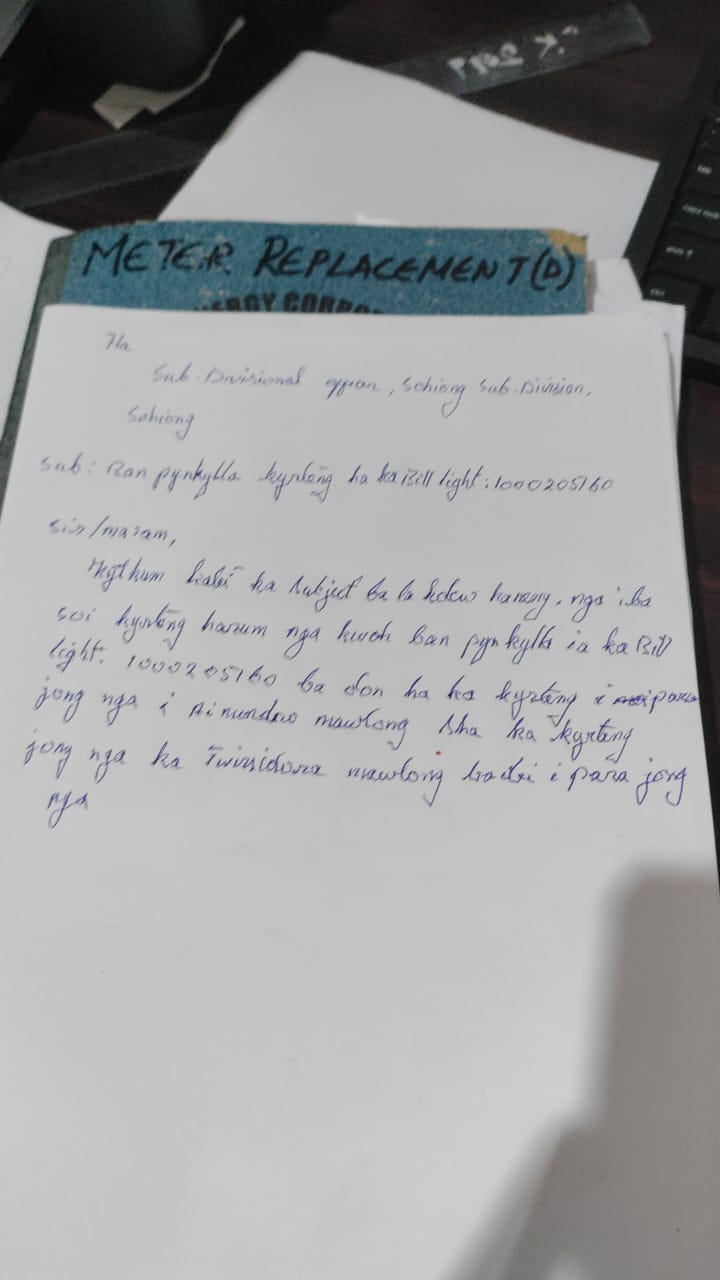 METER REPLACEMENT(D)
ENERGY CORPO
To
Sub-Divisional, Sohiong Sub-Division,
Sohiong
Sub: Ban pynkylla kyrteng ha ka Bill light: 1000205160
Sir/Madam,
Katkum ka subject ba la kdew haneng, nga iba
soi kyrteng harum nga kwah ban pynkylla ia ka Bill
light. 1000205160 ba don ha ka kyrteng i para
jong nga i mawlong sha ka kyrteng
jong nga ka Twinsidora mawlong i para jong
nga